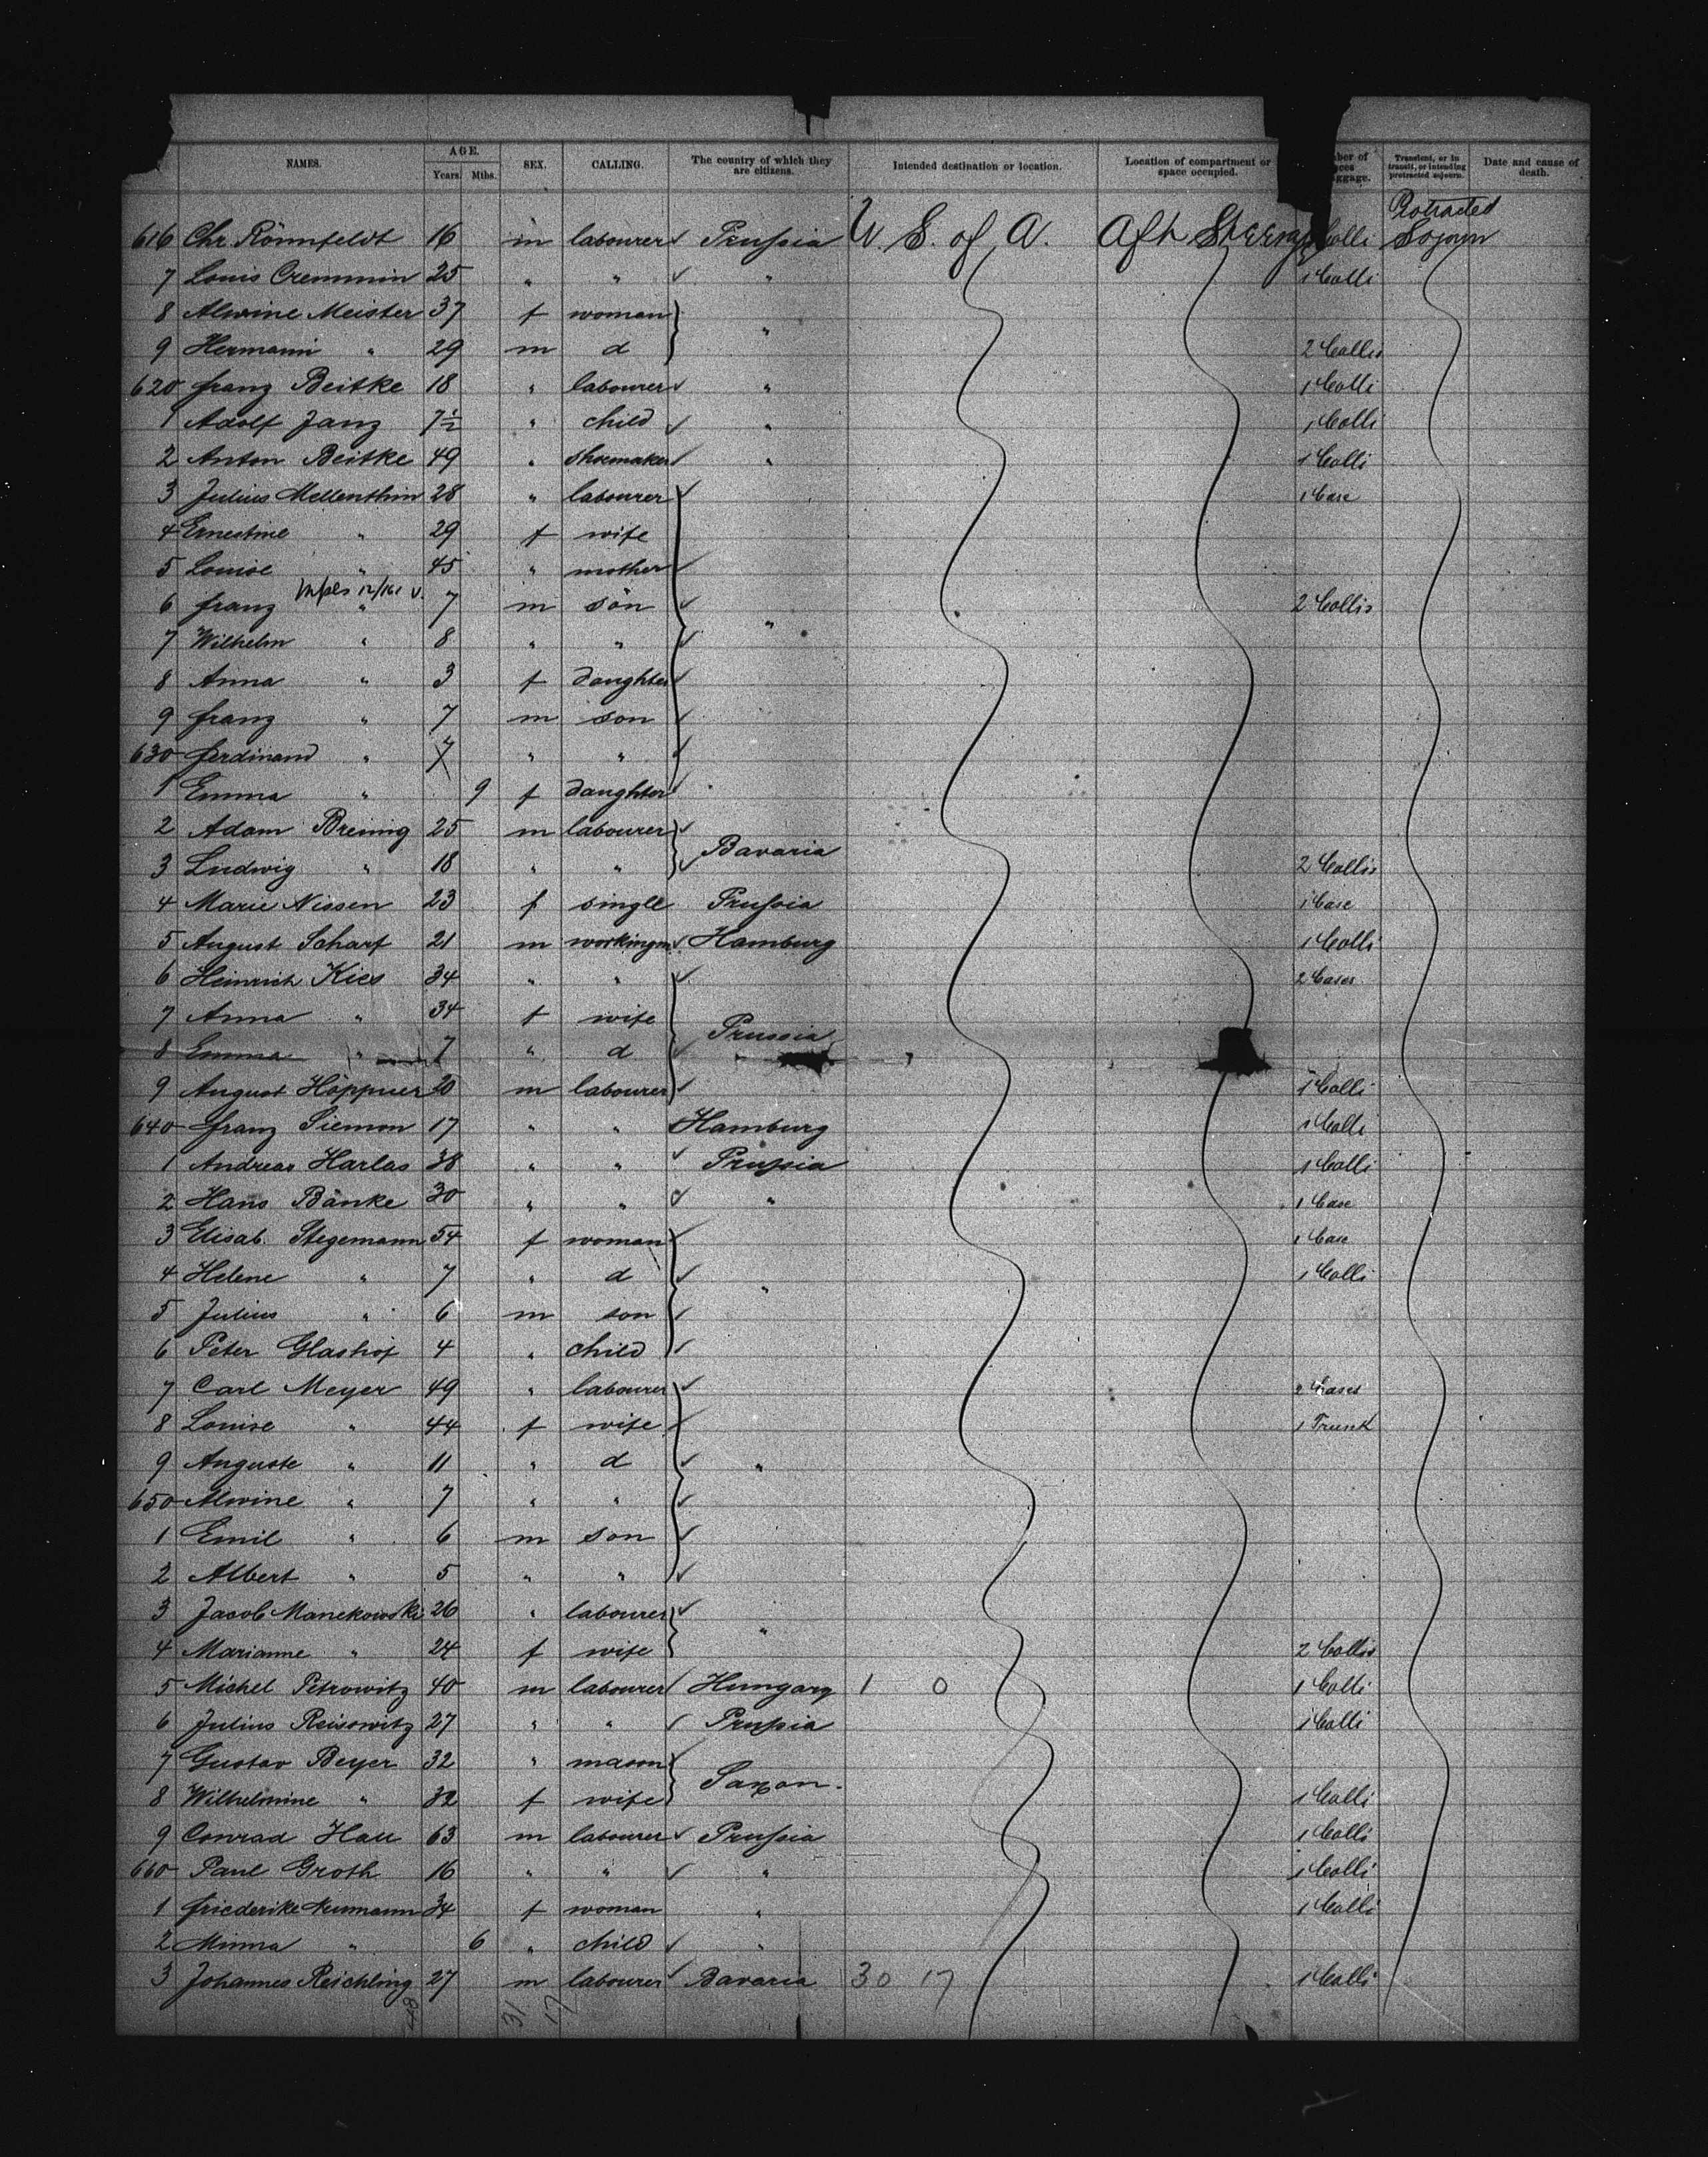 NAMES. AGE. Years. Mths. SEX. CALLING. The country of which they are citizens. Intended destination or location. Location of compartment or space occupied. Transient, or in transit, or intending protracted sojourn. Date and cause of death.
Protracted
616 Chr. Rönnfeldt 16 m labourer Prussia U. S. of A. Aft Steerage Colli Sojourn
7 Louis Cremmin 25 " " " 1 Colli
8 Alwine Meister 37 f woman
9 Hermann " 29 m d " 2 Collis
620 Franz Beitke 18 " labourer " 1 Colli
1 Adolf Janz 7½ " child " 1 Colli
2 Anton Beitke 49 " shoemaker " 1 Colli
3 Julius Mellenthin 28 " labourer 1 Case
4 Ernestine " 29 f wife
5 Louise " 45 " mother
6 Franz " 7 m son 2 Collis
7 Wilhelm " 8 " " "
8 Anna " 3 f daughter
9 Franz " 7 m son
630 Ferdinand " 7 " "
1 Emma " 9 f daughter
2 Adam Breinig 25 m labourer Bavaria
3 Ludwig " 18 " " 2 Collis
4 Marie Nissen 23 f single Prussia 1 Case
5 August Scharf 21 m workingm Hamburg 1 Colli
6 Heinrich Kies 34 " " 2 Cases
7 Anna " 34 f wife Prussia
8 Emma " 7 " d
9 August Höppner 20 m labourer 1 Colli
640 Franz Siemon 17 " " Hamburg 1 Colli
1 Andreas Harlas 38 " " Prussia 1 Colli
2 Hans Bänke 30 " " " 1 Case
3 Elisab. Stegemann 54 f woman 1 Case
4 Helene " 7 " d " 1 Colli
5 Julius " 6 m son
6 Peter Glashof 4 " child
7 Carl Meyer 49 " labourer 2 Cases
8 Louise " 44 f wife 1 Trunk
9 Auguste " 11 " d "
650 Alwine " 7 " "
1 Emil " 6 m son
2 Albert " 5 " "
3 Jacob Manekowski 26 " labourer "
4 Marianne " 24 f wife 2 Collis
5 Michel Petrowitz 40 m labourer Hungary 1 0 1 Colli
6 Julius Reisowitz 27 " " Prussia 1 Colli
7 Gustav Beyer 32 " mason Saxon.
8 Wilhelmine " 32 f wife 1 Colli
9 Conrad Hau 63 m labourer Prussia 1 Colli
660 Paul Groth 16 " " " 1 Colli
1 Friederike Neumann 34 f woman " 1 Colli
2 Minna " 6 " child "
3 Johannes Reichling 27 m labourer Bavaria 30 17 1 Colli
31 17